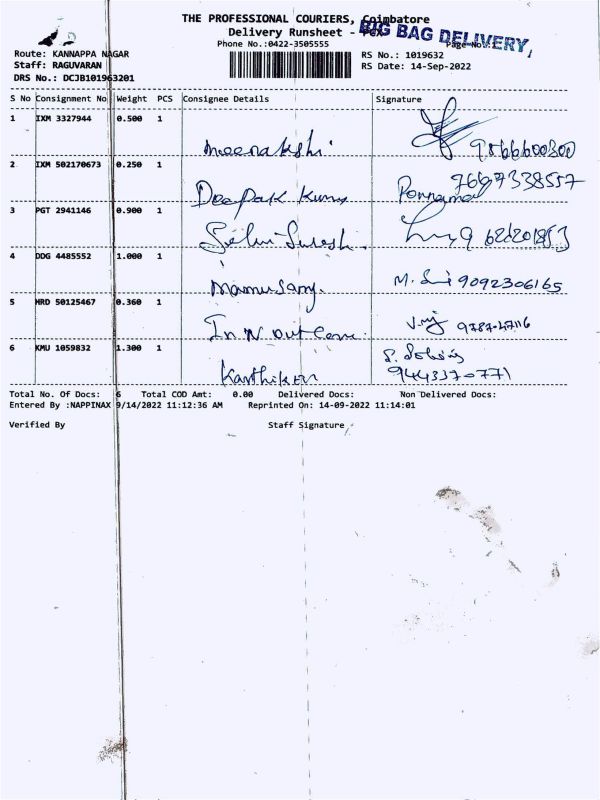 THE PROFESSIONAL COURIERS, Coimbatore
Delivery Runsheet -
BIG BAG DELIVERY
Phone No.:0422-3505555
Page No
Route: KANNAPPA NAGAR
RS No.: 1019632
Staff: RAGUVARAN
RS Date: 14-Sep-2022
DRS No.: DCJB101963201
S No Consignment No Weight PCS Consignee Details Signature
1 IXM 3327944 0.500 1
Meenakshi 9866600300
2 IXM 502170673 0.250 1
Deepak Kumar 7667338557
3 PGT 2941146 0.900 1
Selvi Suresh.
4 DDG 4485552 1.000 1
M. 9092306165
5 HRD 50125467 0.360 1
In N out
6 KMU 1059832 1.300 1
Karthiken 9443370771
Total No. Of Docs: 6 Total COD Amt: 0.00 Delivered Docs: Non Delivered Docs:
Entered By :NAPPINAX 9/14/2022 11:12:36 AM Reprinted On: 14-09-2022 11:14:01
Verified By Staff Signature